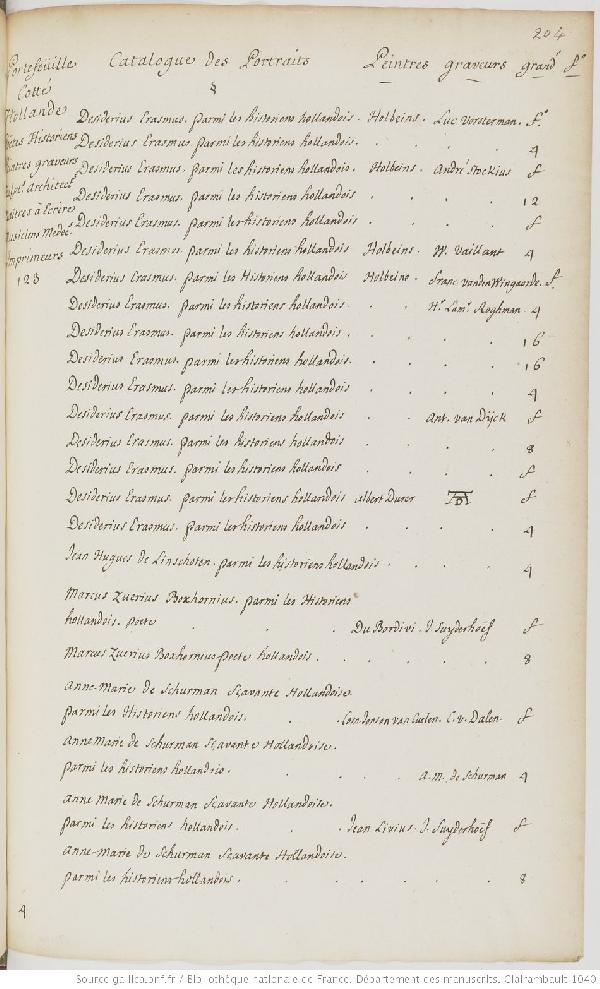 204
Portefeüille Catalogue des Portraits Peintres graveurs grand.r f.o
Cotté
Hollande
Historiens
Peintres graveurs
Architect
à Ecrire
Musiciens Medec.
Imprimeurs
123
Desiderius Erasmus. parmi les historiens hollandois. Holbeins. Luc Vorsterman. f.o
Desiderius Erasmus. parmi les historiens hollandois. . . 4
Desiderius Erasmus. parmi les historiens hollandois. Holbeins. André Stockius f
Desiderius Erasmus. parmi les historiens hollandois . . . 12
Desiderius Erasmus. parmi les historiens hollandois . . . f
Desiderius Erasmus. parmi les historiens hollandois Holbeins. W. Vaillant 4
Desiderius Erasmus. parmi les Historiens hollandois Holbeins. Franc. vanden Wingaerde. f.
Desiderius Erasmus. parmi les historiens hollandois . . H. Lam. Roghman. 4
Desiderius Erasmus. parmi les historiens hollandois . . . . 16
Desiderius Erasmus. parmi les historiens hollandois. . . . . 16
Desiderius Erasmus. parmi les historiens hollandois . . . . 4
Desiderius Erasmus. parmi les historiens hollandois . . Ant. van Dÿck f
Desiderius Erasmus. parmi les historiens hollandois . . . . 8
Desiderius Erasmus. parmi les historiens hollandois . . . . f
Desiderius Erasmus. parmi les historiens hollandois Albert Durer AD f
Desiderius Erasmus. parmi les historiens hollandois . . . . 4
Jean Hugues de Linschoten. parmi les historiens hollandois . . . . 4
Marcus Zuerius Boxhornius. parmi les Historiens
hollandois. poete . . . Du Bordivi. J. Suyderhoëf f
Marcus Zuerius Boxhornius poete hollandois . . . . . 8
Anne-Marie de Schurman Sçavante Hollandoise
parmi les Historiens hollandois. . . Corn. Jonson van Ceulen. C. v. Dalen. f
Anne Marie de Schurman Sçavante Hollandoise.
parmi les historiens hollandois. . . . A. M. de Schurman 4
Anne Marie de Schurman Sçavante Hollandoise.
parmi les historiens hollandois. . . Jean Livius. J. Suyderhoëf f
Anne-Marie de Schurman Sçavante Hollandoise.
parmi les historiens hollandois. . . . . . 8
4
Source gallica.bnf.fr / Bibliothèque nationale de France. Département des manuscrits. Clairambault 1040